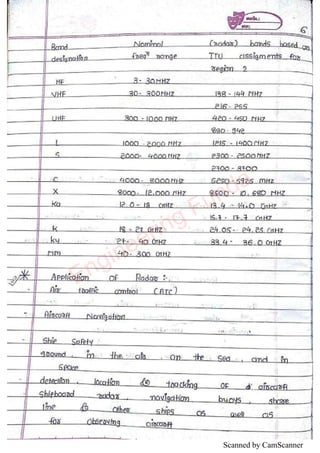 6
Band Nominal (radar) bands based on
designation freqn range ITU assignments for
region 2
HF 3 - 30MHZ
VHF 30 - 300MHZ 138 - 144 MHZ
216 - 225
UHF 300 - 1000 MHZ 420 - 450 MHZ
890 - 942
L 1000 - 2000 MHZ 1215 - 1400 MHZ
S 2000 - 4000 MHZ 2300 - 2500 MHZ
2700 - 3700
C 4000 - 8000 MHZ 5250 - 5925 MHZ
X 8000 - 12,000 MHZ 8500 - 10,680 MHZ
Ka 12.0 - 18 GHZ 13.4 - 14.0 GHZ
15.7 - 17.7 GHZ
K 18 - 27 GHZ 24.05 - 24.25 GHZ
ky 27 - 40 GHZ 33.4 - 36.0 GHZ
mm 40 - 300 GHZ
* Application OF Radar :-
Air traffic control (ATC)
Aircraft Navigation
Ship Safty
ground, in the air on the sea, and in
space
detection, location & tracking OF aircraft
shipboard radar, navigation buoys, shore
line & other ships as well as
for observing aircraft
Engineering Fu
Scanned by CamScanner